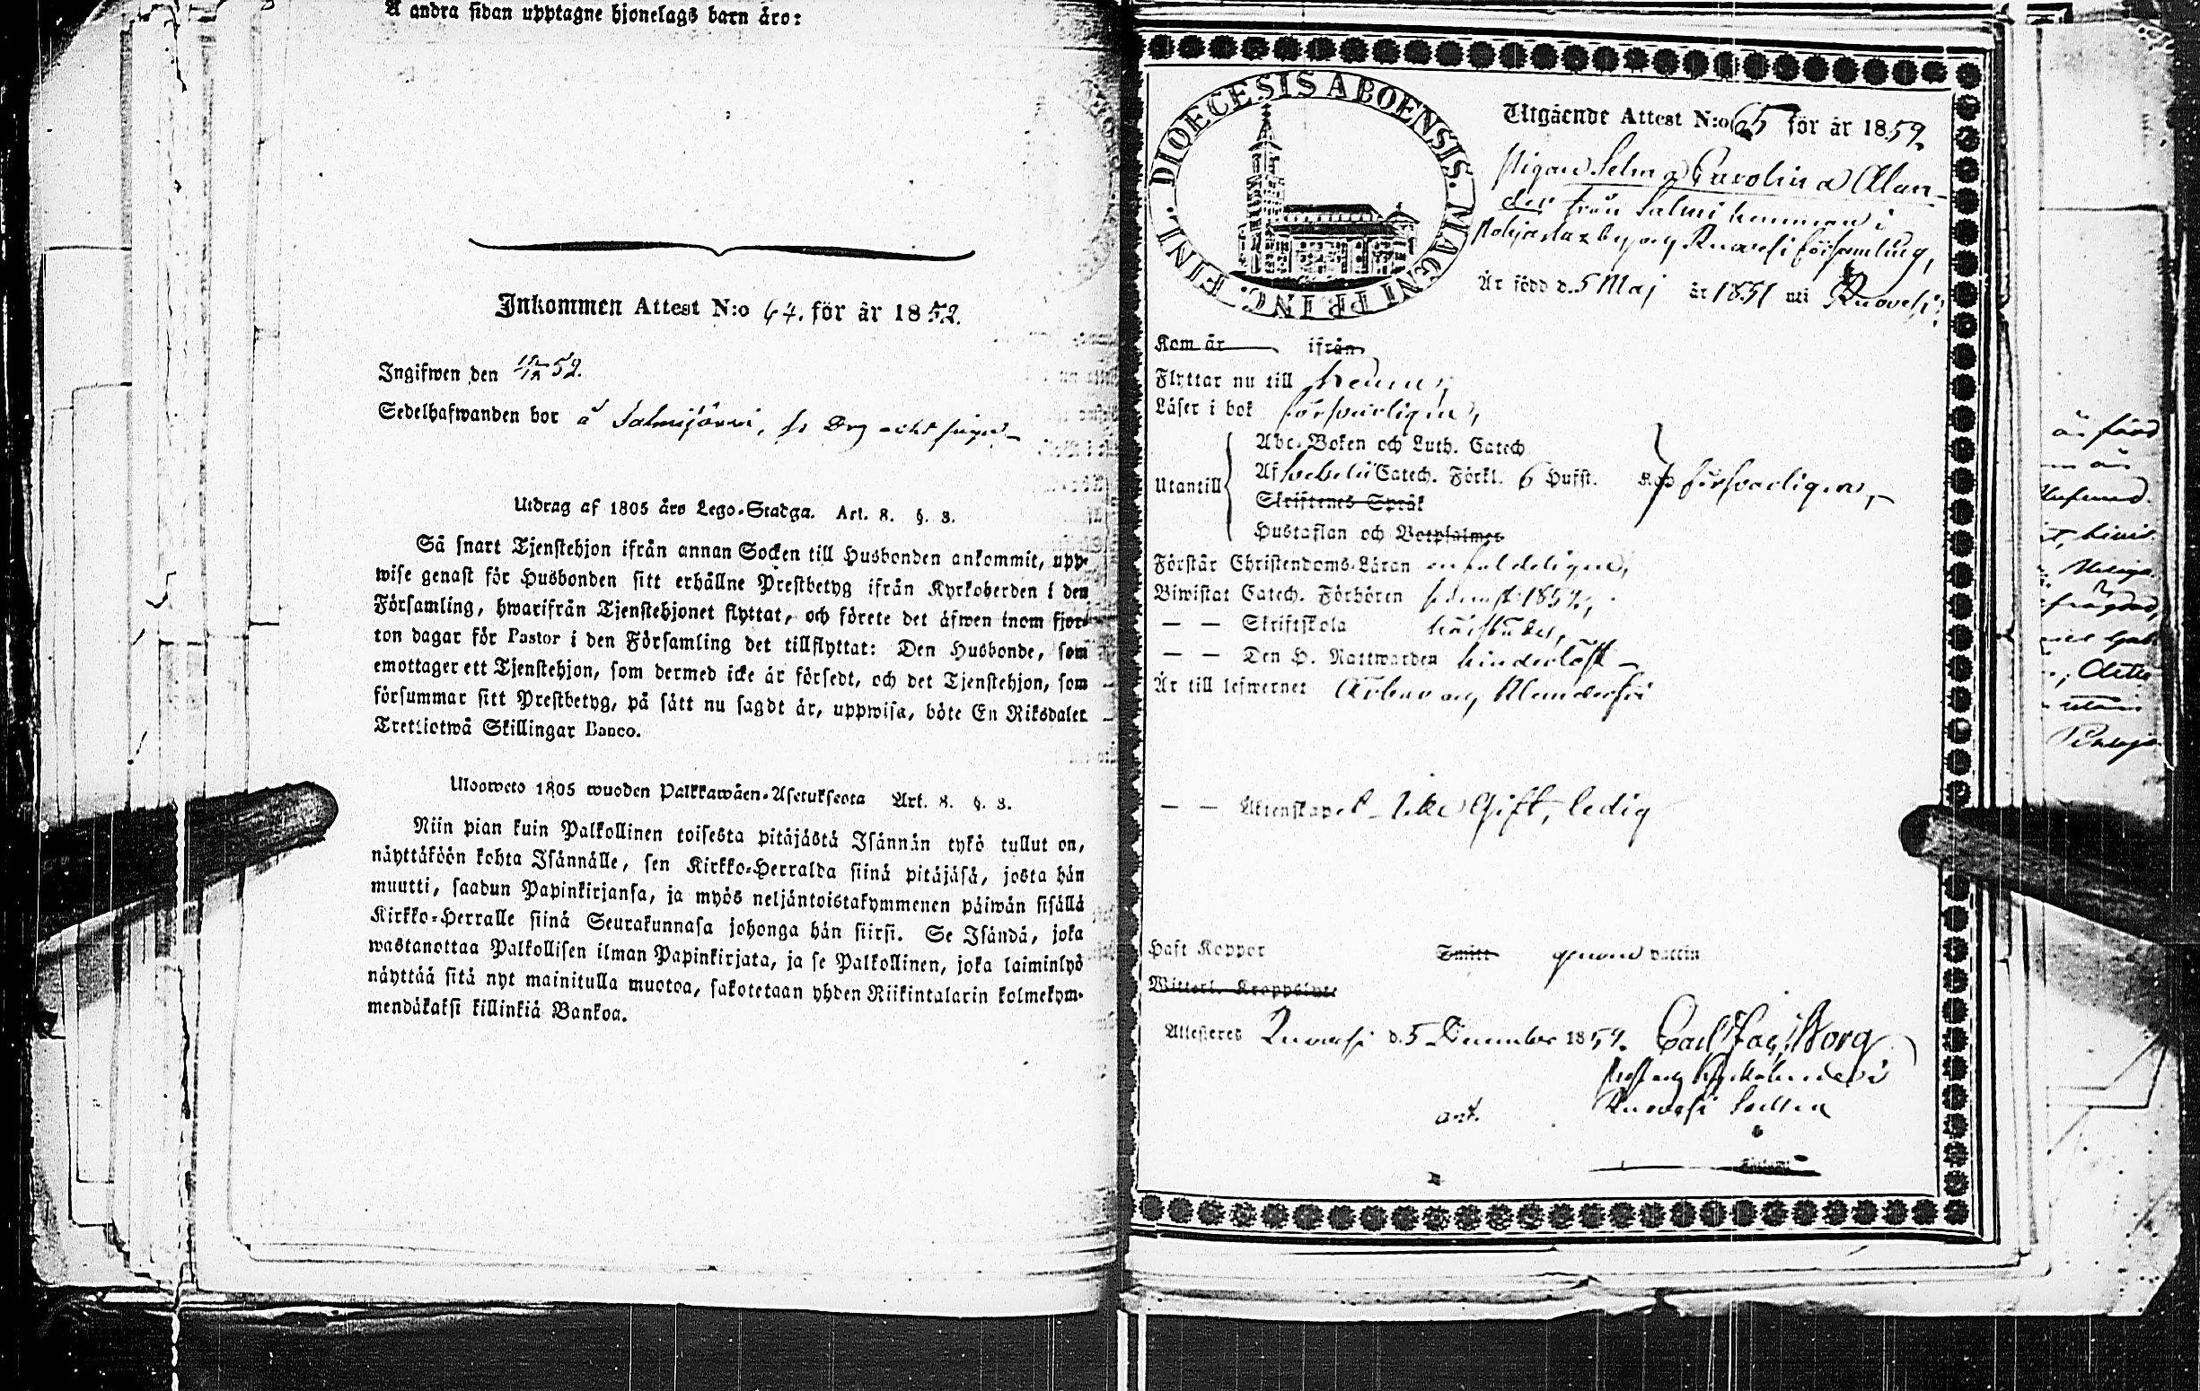 Å andra sidan upptagne hjonelags barn äro:
Inkommen Attest N:o 64. för år 1859.
Ingifwen den 15/12 59.
Sedelhafwanden bor å Salmijärvi,
Utdrag af 1805 åro Lego-Stadga. Art. 8. §. 3.
Så snart Tjenstehjon ifrån annan Socken till Husbonden ankommit, upp-
wise genast för Husbonden sitt erhållne Prestbetyg ifrån Kyrkoherden i den
Församling, hwarifrån Tjenstehjonet flyttat, och förete det äfwen inom fjor-
ton dagar för Pastor i den Församling det tillflyttat: Den Husbonde, som
emottager ett Tjenstehjon, som dermed icke är försedt, och det Tjenstehjon, som
försummar sitt Prestbetyg, på sätt nu sagdt är, uppwisa, böte En Riksdaler
Trettiotwå Skillingar Banco.
Uloosweto 1805 wuoden Palkkawäen-Asetuksesta Art. 8. §. 3.
Niin pian kuin Palkollinen toisesta pitäjästä Isännän tykö tullut on,
näyttäköön kohta Isännälle, sen Kirkko-Herralda siinä pitäjäsä, josta hän
muutti, saadun Papinkirjansa, ja myös neljäntoistakymmenen päiwän sisällä
Kirkko-Herralle siinä Seurakunnasa johonga hän siirsi. Se Isändä, joka
wastanottaa Palkollisen ilman Papinkirjata, ja se Palkollinen, joka laiminlyö
näyttää sitä nyt mainitulla muotoa, sakotetaan yhden Riikintalarin kolmekym-
mendäkaksi killinkiä Bankoa.
DIOECESIS ABOENSIS. MAGNI PRINC. FINL.
Utgående Attest N:o 65 för år 1859.
Pigan Selma Carolina Alan-
der från Salmi hemman i
Pohjaslax by och Ruovesi församling,
Är född d. 5 Maj år 1851 uti Ruovesi;
Kom år ifrån
Flyttar nu till
Läser i bok försvarligen,
Utantill
Abc-Boken och Luth. Catech
Af Svebelii Catech. Förkl. 6 Hufst. försvarligen,
Skriftenes Språk
Hustaflan och Botpsalmer
Förstår Christendoms-Läran enfaldeligen,
Biwistat Catech. Förhören sednast 1859,
— — Skriftskola
— — Den H. Nattwarden hinderlöst
Är till lefwernet Ärbar och
— — Äktenskapet icke Gift, ledig
Haft Koppor Smitt genom vaccin
Witterl. Kroppslyte
Attesteres Ruovesi d. 5 December 1859. Carl Jac. Borg
Prost och Kyrkoherde i
Ruovesi Socken